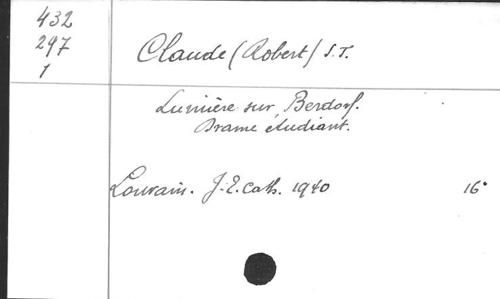 432
297
1
Claude (Robert) S.T.
Lumière sur Berdorf.
Drame étudiant.
Louvain. J.E.cath. 1940 16°